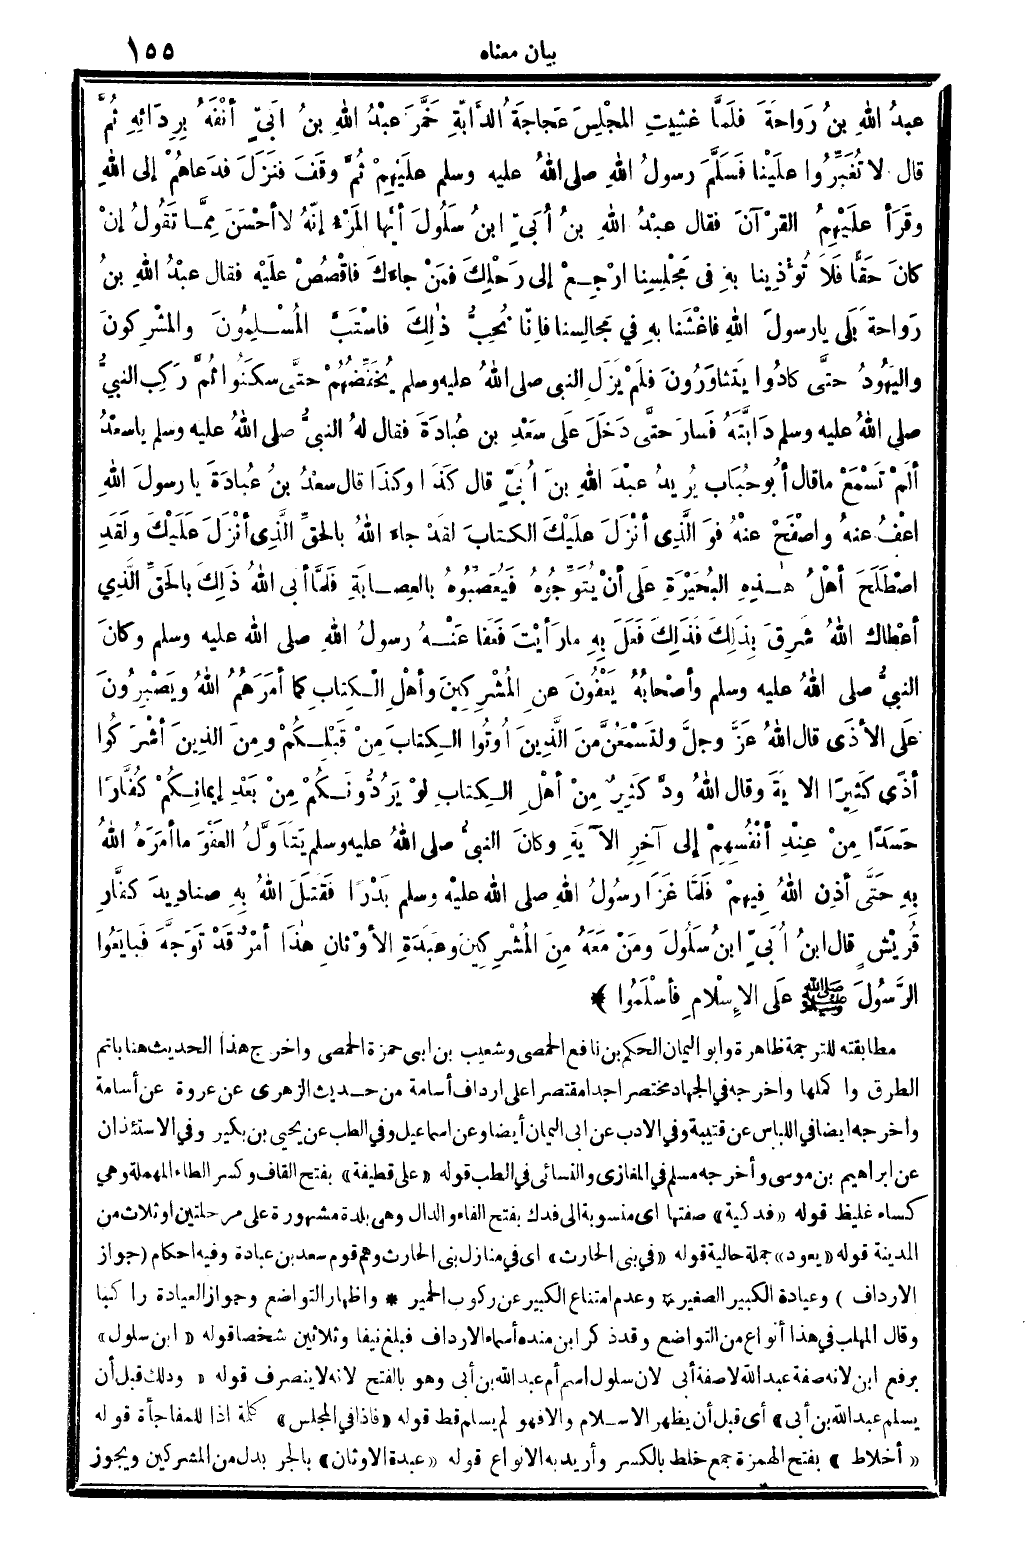 بيان معناه ١٥٥
عبدُ اللهِ بنُ رَواحةَ فلَمَّا غشِيَتِ المجْلِسَ عَجاجَةُ الدَّابَّةِ خَمَّرَ عبْدُ اللهِ بنُ ابَىٍّ أنْفَهُ بِردَائِهِ ثُمَّ
قال لا تُغَبِّرُوا علَيْنا فَسَلَّمَ رسولُ اللهِ صلى اللهُ عليه وسلم علَيْهِمْ ثُمَّ وقَفَ فنَزَلَ فدعاهُمْ إلى اللهِ
وقَرَأ علَيْهِمُ القرْآنَ فقال عبْدُ اللهِ بنُ أُبَىٍّ ابنُ سَلُولَ أيُّها المَرْءُ إنّهُ لا أحْسَنَ مِمَّا تَقُولُ إنْ
كانَ حَقًّا فَلاَ تُؤْذِينا بهِ فى مَجْلِسِنا ارْجِعْ إلى رَحْلِكَ فمَنْ جاءكَ فاقْصُصْ علَيْهِ فقال عبْدُ اللهِ بنُ
رَواحةَ بَلَى يا رسولَ اللهِ فاغْشَنا بهِ فِي مَجالِسِنا فإنّا نُحِبُّ ذٰلِكَ فاسْتَبَّ المُسْلِمُونَ والمشْرِكونَ
واليَهُودُ حتَّى كادُوا يَتَثاوَرُونَ فلَمْ يَزَلِ النبى صلى اللهُ عليه وسلم يُخَفِّضُهُمْ حتَّى سكَنُوا ثُمَّ رَكِبَ النبىُّ
صلى اللهُ عليه وسلم دَابَّتَهُ فَسارَ حتَّى دَخَلَ عَلَى سَعْدِ بنِ عُبادَةَ فقال لهُ النبىُّ صلى اللهُ عليه وسلم يا سعْدُ
ألَمْ تَسْمَعْ ما قال أبُو حُبَاب يُرِيدُ عبْدَ اللهِ بنَ أُبَىٍّ قال كَذَا وكذَا قال سعْدُ بنُ عُبادَةَ يا رسولَ اللهِ
اعْفُ عنهُ واصْفَحْ عنْهُ فوَالَّذِى أنْزَلَ علَيْكَ الكتابَ لقَدْ جاءَ اللهُ بالحَقِّ الَّذِى أنْزَلَ عَلَيْكَ ولَقَدِ
اصْطَلَحَ أهْلُ هٰذِهِ البُحَيْرَةِ علَى أنْ يُتَوِّجُوهُ فَيُعَصِّبُوهُ بالعِصابَةِ فلَمَّا أبى اللهُ ذٰلِكَ بالحَقِّ الَّذِي
أعْطاكَ اللهُ شَرِقَ بِذَلِكَ فَذَلِكَ فعَلَ بِهِ ما رَأيْتَ فَعَفا عَنْهُ رسولُ اللهِ صلى الله عليه وسلم وكانَ
النبىُّ صلى اللهُ عليه وسلم وأصْحابُهُ يَعْفُونَ عنِ المُشْرِكِينَ وأهْلِ الْكِتابِ كما أمَرَهُمُ اللهُ ويَصْبِرُونَ
علَى الأذَى قال اللهُ عَزَّ وجلَّ ولتَسْمَعُنَّ مِنَ الَّذِينَ أوتُوا الكِتابَ مِنْ قَبْلِكُمْ ومِنَ الذِينَ أشْرَكُوا
أذًى كَثِيرًا الايَةَ وقال اللهُ ودَّ كَثِيرٌ مِنْ أهْلِ الكِتابِ لوْ يَرُدُّونَكُمْ مِنْ بَعْدِ إيمانِكُمْ كُفَّارًا
حَسَدًا مِنْ عِنْدِ أنْفُسِهِمْ إلى آخِرِ الآيَةِ وكانَ النبىُّ صلى اللهُ عليه وسلم يَتَأوَّلُ العَفْوَ ما أمَرَهُ اللهُ
بِهِ حَتَّى أذِنَ اللهُ فِيهِمْ فَلَمَّا غَزَا رسولُ اللهِ صلى الله عليْهِ وسلم بَدْرًا فَقتَلَ اللهُ بِهِ صنادِيدَ كفَّارِ
قُرَيْشٍ قال ابنُ أُبَىٍّ ابنُ سَلُولَ ومَنْ مَعَهُ مِنَ المُشْرِكِينَ وعبَدَةِ الأوْثانِ هٰذَا أمْرٌ قَدْ تَوَجَّهَ فَبايَعُوا
الرَّسُولَ ﷺ عَلَى الإِسْلامِ فأسْلَمُوا ﴾
مطابقته للترجمة ظاهرة وابو اليمان الحكم بن نافع الحمصى وشعيب بن ابى حمزة الحمصى واخرج هذا الحديث هنا باتم
الطرق واكملها واخرجه في الجهاد مختصرا جدا مقتصرا على ارداف أسامة من حديث الزهرى عن عروة عن أسامة
وأخرجه ايضا في اللباس عن قتيبة وفي الادب عن ابى اليمان أيضا وعن اسماعيل وفي الطب عن يحيى بن بكير وفي الاستئذان
عن ابراهيم بن موسى وأخرجه مسلم في المغازى والنسائى في الطب قوله «على قطيفة» بفتح القاف وكسر الطاء المهملة وهي
كساء غليظ قوله «فدكية» صفتها اى منسوبة الى فدك بفتح الفاء والدال وهى بلدة مشهورة على مرحلتين او ثلاث من
المدينة قوله «يعود» جملة حالية قوله «في بنى الحارث» اى في منازل بنى الحارث وهم قوم سعد بن عبادة وفيه احكام (جواز
الارداف) وعيادة الكبير الصغير * وعدم امتناع الكبير عن ركوب الحمير * واظهار التواضع وجواز العيادة راكبا
وقال المهلب في هذا أنواع من التواضع وقد ذكر ابن منده أسماء الارداف فبلغ نيفا وثلاثين شخصا قوله «ابن سلول»
برفع ابن لانه صفة عبد الله لا صفة أبى لان سلول اسم أم عبد الله بن أبى وهو بالفتح لانه لا ينصرف قوله «وذلك قبل أن
يسلم عبد الله بن أبى» أى قبل أن يظهر الاسلام والا فهو لم يسلم قط قوله «فاذا في المجلس» كلمة اذا للمفاجأة قوله
«أخلاط» بفتح الهمزة جمع خلط بالكسر وأريد به الانواع قوله «عبدة الاوثان» بالجر بدل من المشركين ويجوز